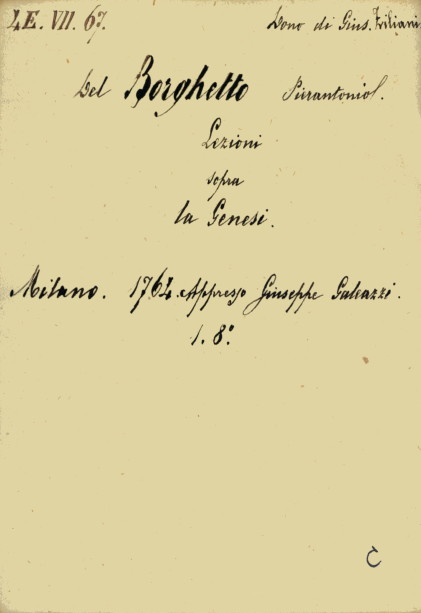 4E. VII. 67. Dono di Gius. Friliani
Del Borghetto Pierantonio.
Lezioni
sopra
la Genesi.
Milano. 1764. Appresso Giuseppe Galeazzi.
1. 8°.
C